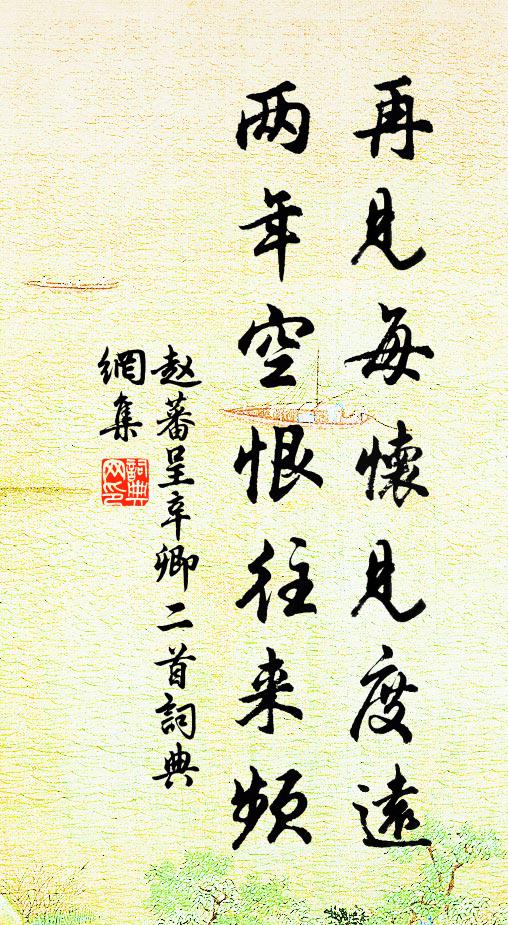 再见每懷见度遠
两年空恨往来频
赵蕃呈辛卿二首詞典
網集
詞典
网印